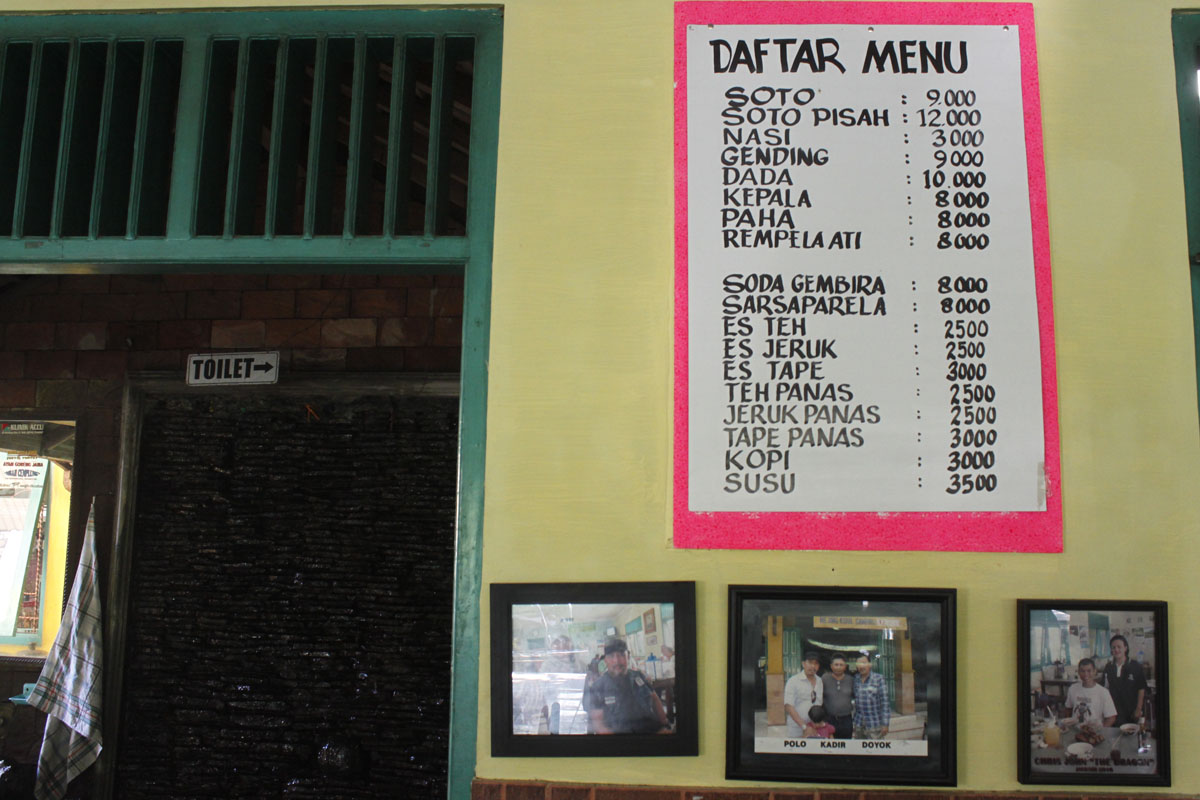 DAFTAR MENU
SOTO : 9.000
SOTO PISAH : 12.000
NASI : 3000
GENDING : 9000
DADA : 10.000
KEPALA : 8000
PAHA : 8000
REMPELA ATI : 8000
SODA GEMBIRA : 8000
SARSAPARELA : 8000
ES TEH : 2500
ES JERUK : 2500
ES TAPE : 3000
TEH PANAS : 2500
JERUK PANAS : 2500
TAPE PANAS : 3000
KOPI : 3000
SUSU : 3500
TOILET→
AYAM GORENG JAWA
POLO KADIR DOYOK
CHRIS JOHN "THE DRAGON"